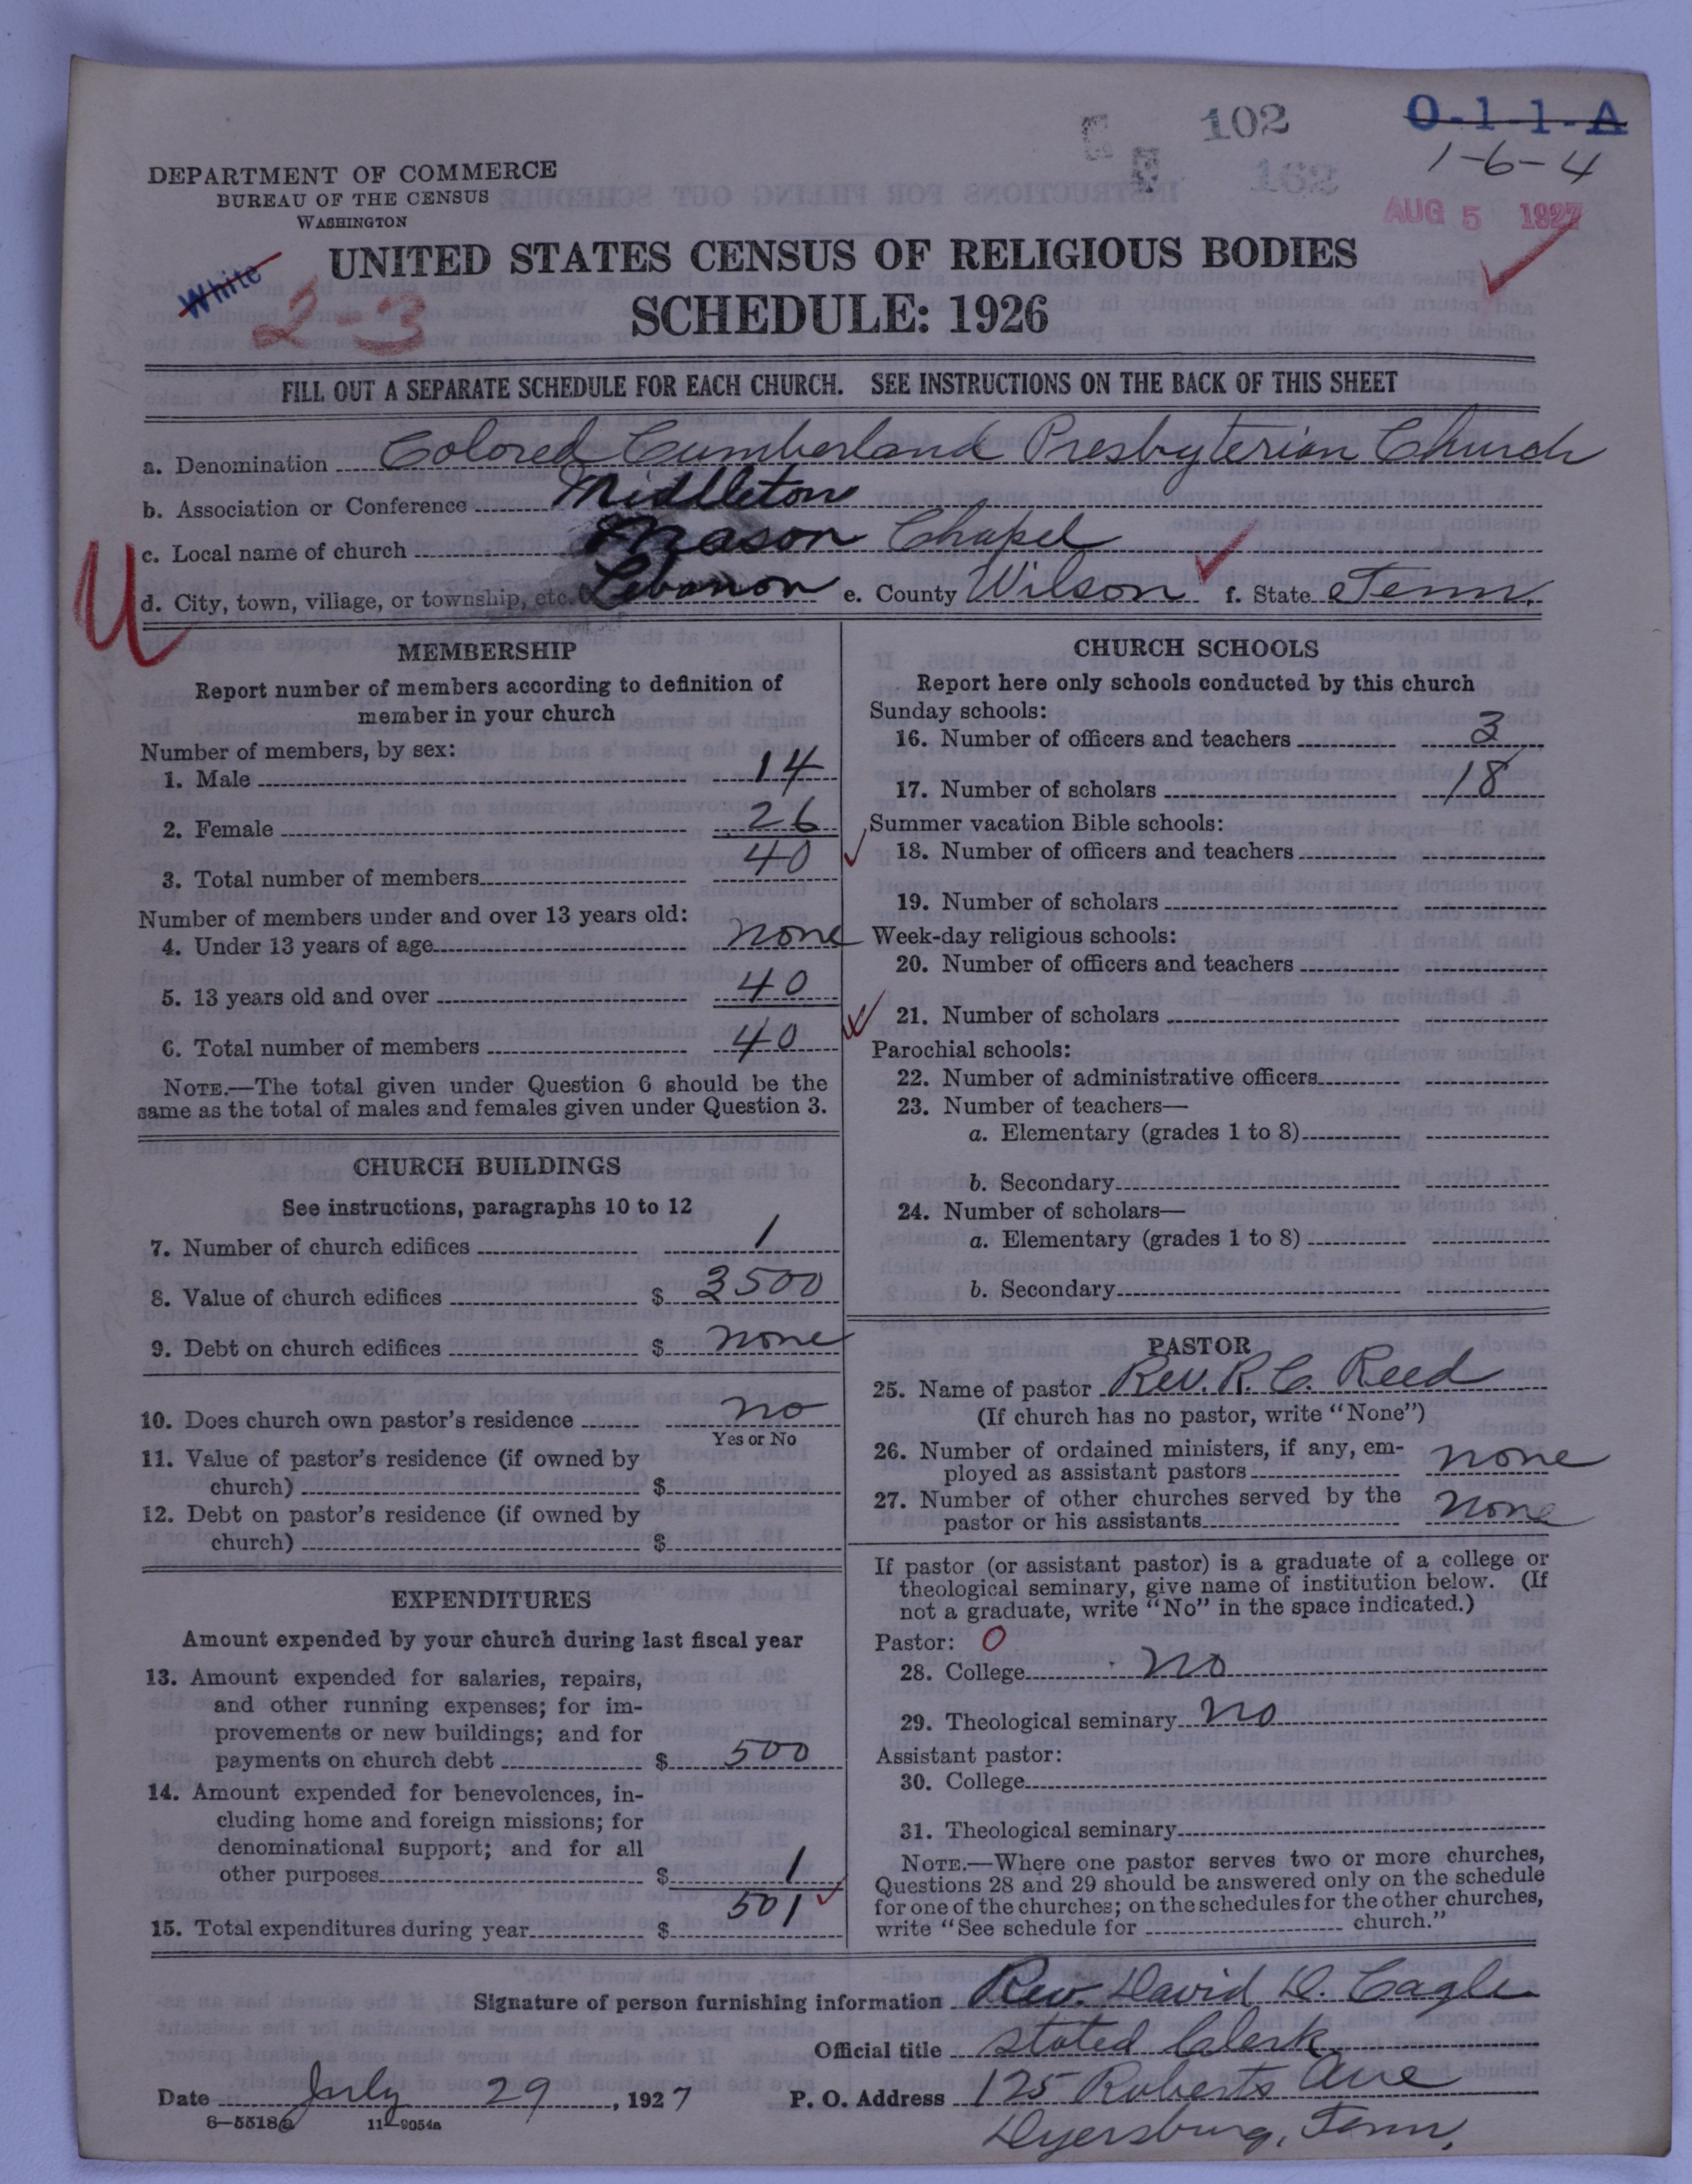 102
O-1-1-A
1-6-4
162
AUG 5 1927
DEPARTMENT OF COMMERCE
BUREAU OF THE CENSUS
WASHINGTON
White
2-3
UNITED STATES CENSUS OF RELIGIOUS BODIES
SCHEDULE: 1926
FILL OUT A SEPARATE SCHEDULE FOR EACH CHURCH. SEE INSTRUCTIONS ON THE BACK OF THIS SHEET
a. Denomination Colored Cumberland Presbyterian Church
b. Association or Conference Middleton
c. Local name of church Mason Chapel
d. City, town, village, or township, etc. Lebanon e. County Wilson f. State Tenn.
U
MEMBERSHIP
Report number of members according to definition of
member in your church
Number of members, by sex:
1. Male 14
2. Female 26
3. Total number of members 40
Number of members under and over 13 years old:
4. Under 13 years of age none
5. 13 years old and over 40
6. Total number of members 40
NOTE.—The total given under Question 6 should be the
same as the total of males and females given under Question 3.
CHURCH BUILDINGS
See instructions, paragraphs 10 to 12
7. Number of church edifices 1
8. Value of church edifices $ 3500
9. Debt on church edifices $ none
10. Does church own pastor's residence no
Yes or No
11. Value of pastor's residence (if owned by
church) $
12. Debt on pastor's residence (if owned by
church) $
EXPENDITURES
Amount expended by your church during last fiscal year
13. Amount expended for salaries, repairs,
and other running expenses; for im-
provements or new buildings; and for
payments on church debt $ 500
14. Amount expended for benevolences, in-
cluding home and foreign missions; for
denominational support; and for all
other purposes $ 1
15. Total expenditures during year $ 501
CHURCH SCHOOLS
Report here only schools conducted by this church
Sunday schools:
16. Number of officers and teachers 3
17. Number of scholars 18
Summer vacation Bible schools:
18. Number of officers and teachers
19. Number of scholars
Week-day religious schools:
20. Number of officers and teachers
21. Number of scholars
Parochial schools:
22. Number of administrative officers
23. Number of teachers—
a. Elementary (grades 1 to 8)
b. Secondary
24. Number of scholars—
a. Elementary (grades 1 to 8)
b. Secondary
PASTOR
25. Name of pastor Rev. R. C. Reed
(If church has no pastor, write "None")
26. Number of ordained ministers, if any, em-
ployed as assistant pastors none
27. Number of other churches served by the
pastor or his assistants none
If pastor (or assistant pastor) is a graduate of a college or
theological seminary, give name of institution below. (If
not a graduate, write "No" in the space indicated.)
Pastor: 0
28. College no
29. Theological seminary no
Assistant pastor:
30. College
31. Theological seminary
NOTE.—Where one pastor serves two or more churches,
Questions 28 and 29 should be answered only on the schedule
for one of the churches; on the schedules for the other churches,
write "See schedule for church."
Signature of person furnishing information Rev. David D. Cagle
Official title stated Clerk
Date July 29, 1927 P. O. Address 125 Roberts Ave
8-5518a 11-9054a
Dyersburg, Tenn.